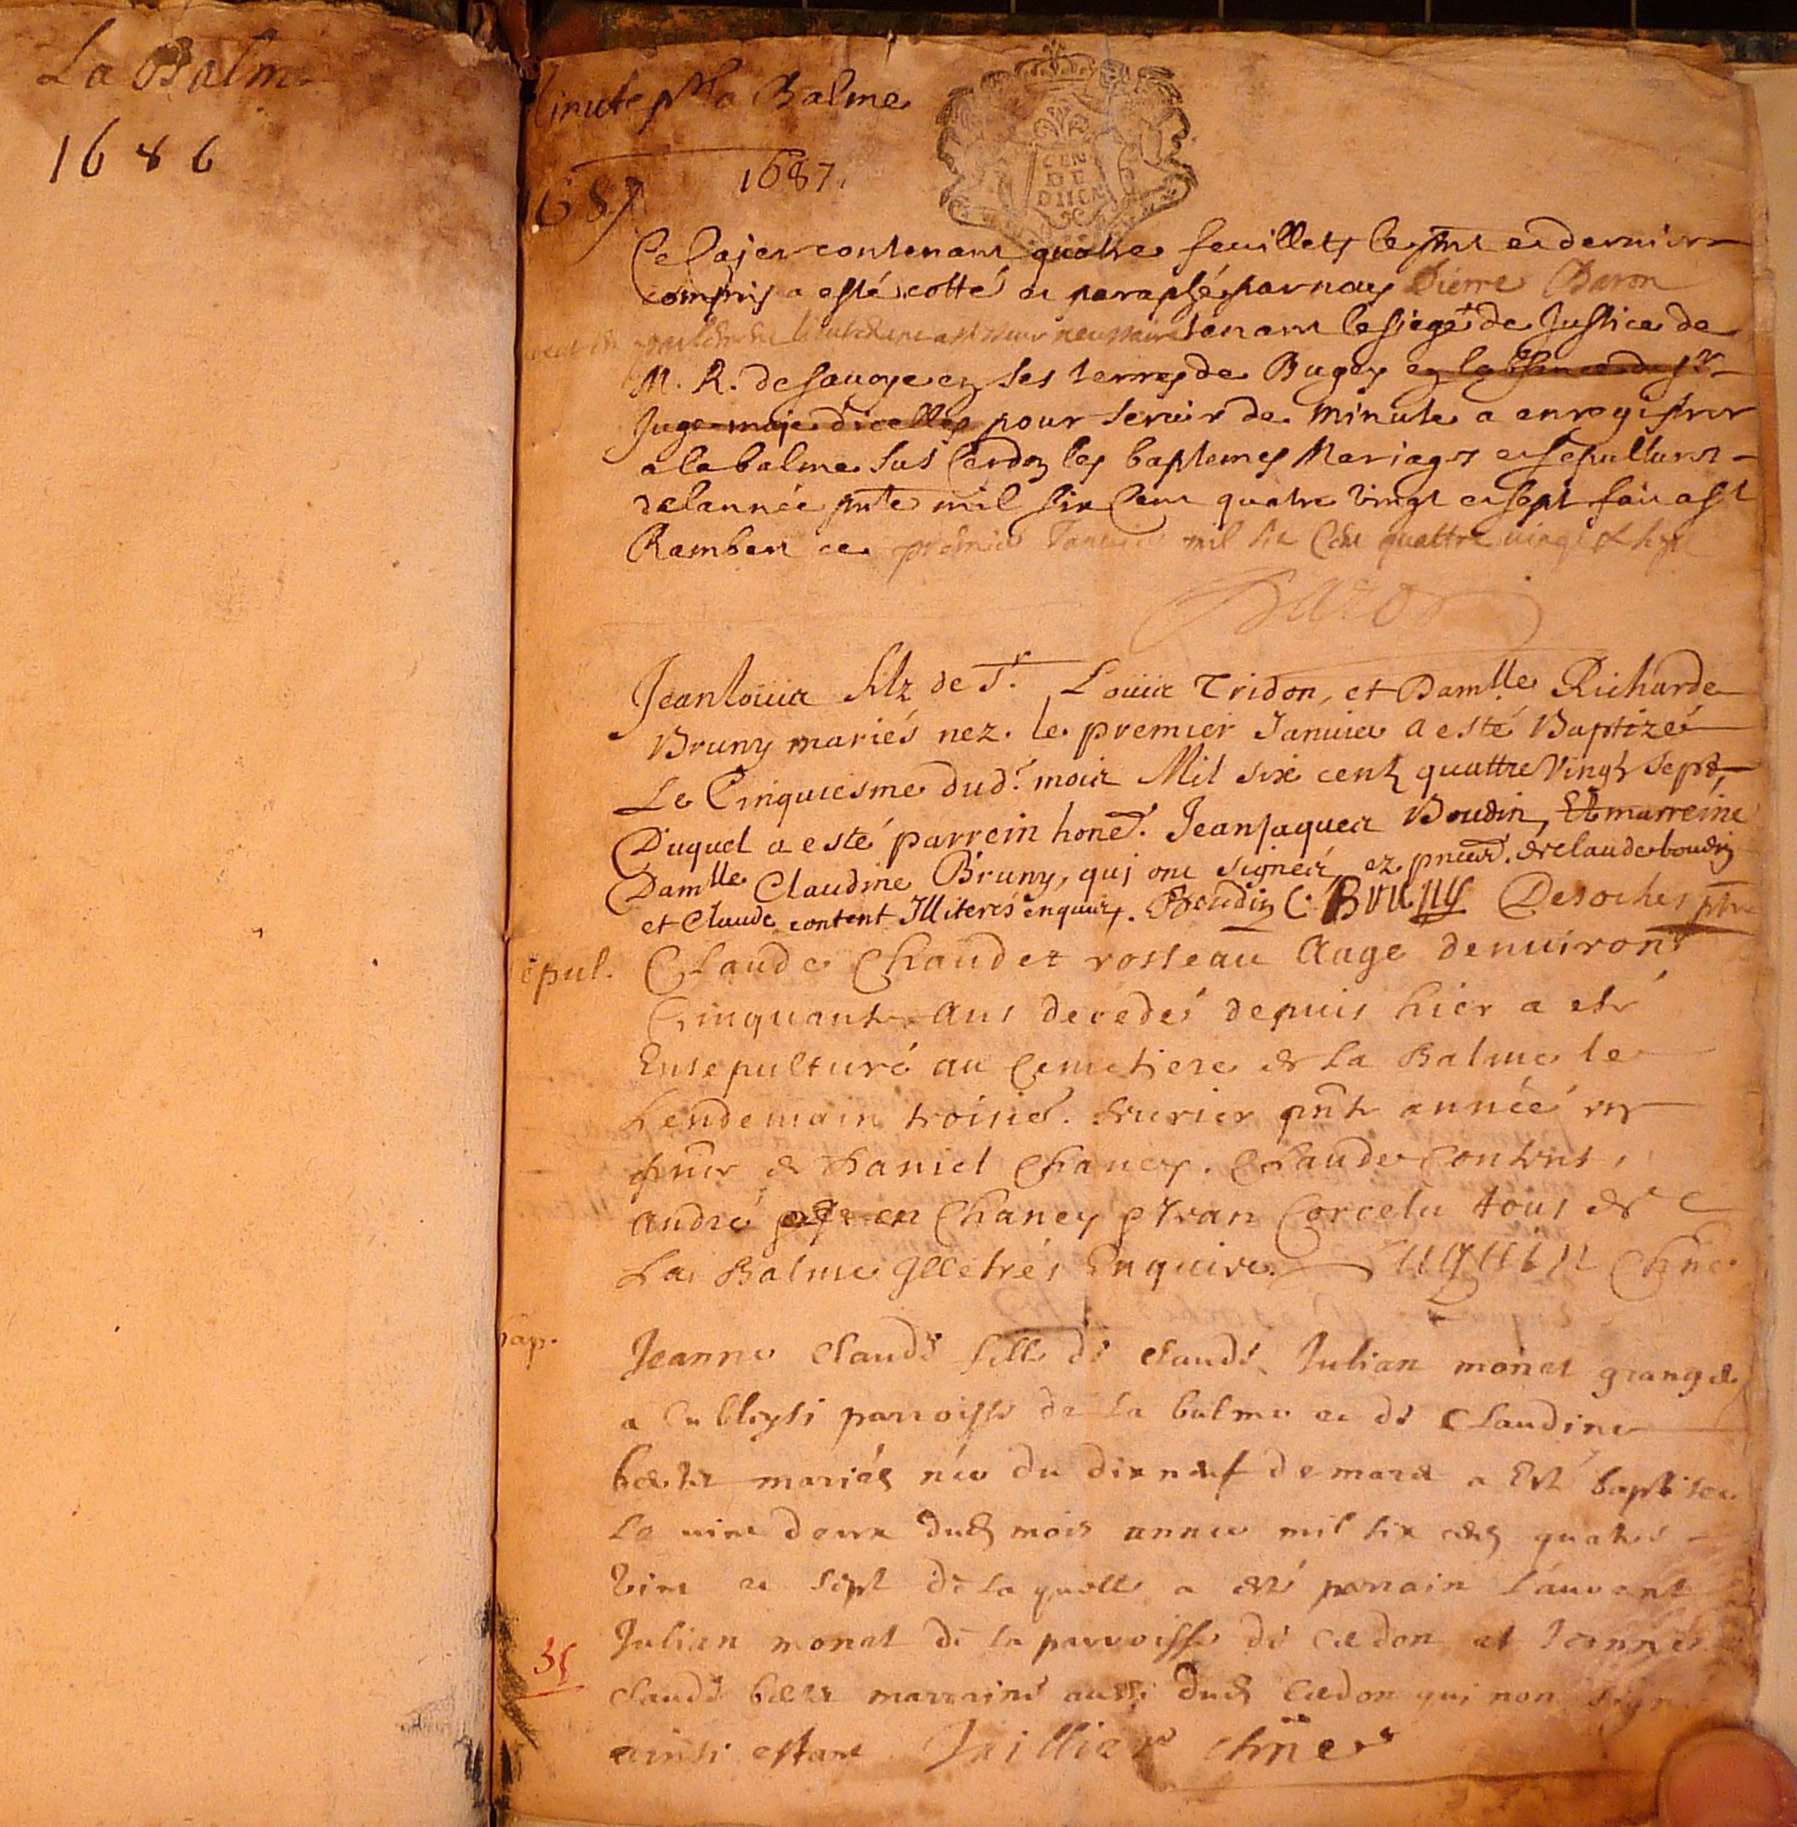 La Balme
1686
Minute p^r la Balme
1687
1687.
GEN
DE
DIION
Ce Cajer contenant quatre feuillets le pnt et dernier
compris a esté cotté et paraphé par nous Pierre Baron
tenant le siege de Justice de
M. R. de Sauoye en ses terres de Bugey en l'absence du sr
Juge maje d'icelles pour seruir de minute a enregistrer
a la balme sus Cerdon les baptemes Mariages et sepultures
de l'année pnte mil six Cens quatre vingt et sept fait a St
Rambert ce premier Januier mil six Cens quattre vingt & sept
Baron
Jean louis filz de Sr. Louis Tridon, et Damlle Richarde
Bruny mariés nez. le premier Januier a esté Baptizé
Le Cinquiesme dud.t mois Mil six cent quattre Vingt sept,
Duquel a esté parrein honet. Jean Jaques Boudin, Et marreine
Damlle Claudine Bruny, qui ont signez ez pnces. de claude boudin
et Claude content Illiterés enquis. Boudin C. Bruny Desoches ptre
epul. Claude Chaudet rosseau Aage denuiron
Cinquante Ans decedé depuis hier a eté
Ensepulturé au Cemetiere de La Balme le
Lendemain troisie. feurier pnte année en
pnce de Daniel Chaney. Claude Contens,
André Chaney Corcelu tous de
La Balme Illetrés Enquire. Luguin
bap. Jeanne Claude fille de Claude Julian monet grang
a parroisse de la balme et de Claudine
mariés née du dix neuf de mars a Esté baptisee
Le vint deux dud mois annee mil six cens quatre
vint et sept de la quelle a esté parrain Lauuant
Julian monet de la parroisse de Cerdon et Jeanne
Claude marraine aussi dud Cerdon qui non signé
35
ainsi estant Juillier